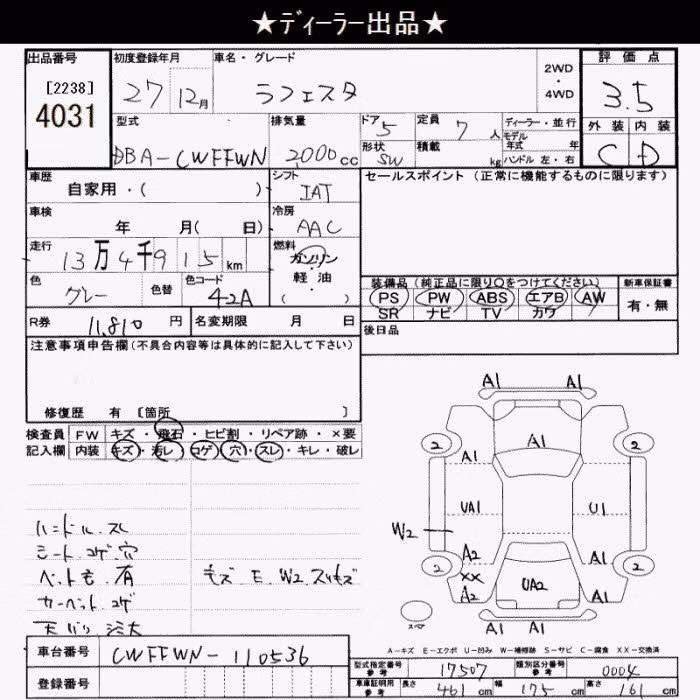 ★ディーラー出品★
出品番号 初度登録年月 車名・グレード 2WD・4WD 評価点
[2238] 27 12月 ラフェスタ 3.5
4031 型式 排気量 ドア 5 定員 7 人 ディーラー・並行 外装 内装
DBA-CWFFWN 2000cc 形状 SW 積載 kg モデル年式 年 C D
ハンドル 左・右
車歴 シフト セールスポイント (正常に機能するものに限ります)
自家用・( ) IAT
車検 冷房
年 月( 日) AAC
走行 13万4千915km 燃料 ガソリン・軽油 ( )
色 グレー 色替 色コード 42A
装備品 (純正品に限り○をつけてください) 新車保証書
PS PW ABS エアB AW 有・無
SR ナビ TV カワ
R券 11,810 円 名変期限 月 日 後日品
注意事項申告欄 (不具合内容等は具体的に記入して下さい)
修復歴 有 [箇所 ]
検査員 FW キズ・飛石・ヒビ割・リペア跡・×要
記入欄 内装 キズ・汚レ・コゲ・穴・スレ・キレ・破レ
ハンドル スレ
シート コゲ 穴
ペット毛 有 キズ E W2
カーペット コゲ
A1 A1
2 A1 2
A1
UA1 U1
W2
A2 A1
2 XX 2
A2 UA2 A1
A1 A1
スペア
A-キズ E-エクボ U-凹み W-補修跡 S-サビ C-腐食 XX-交換済
車台番号 CWFFWN-110536
登録番号
型式指定番号 参考 17507 類別区分番号 参考 0004
車庫証明用 参考 長さ 461 cm 幅 175 cm 高さ 161 cm